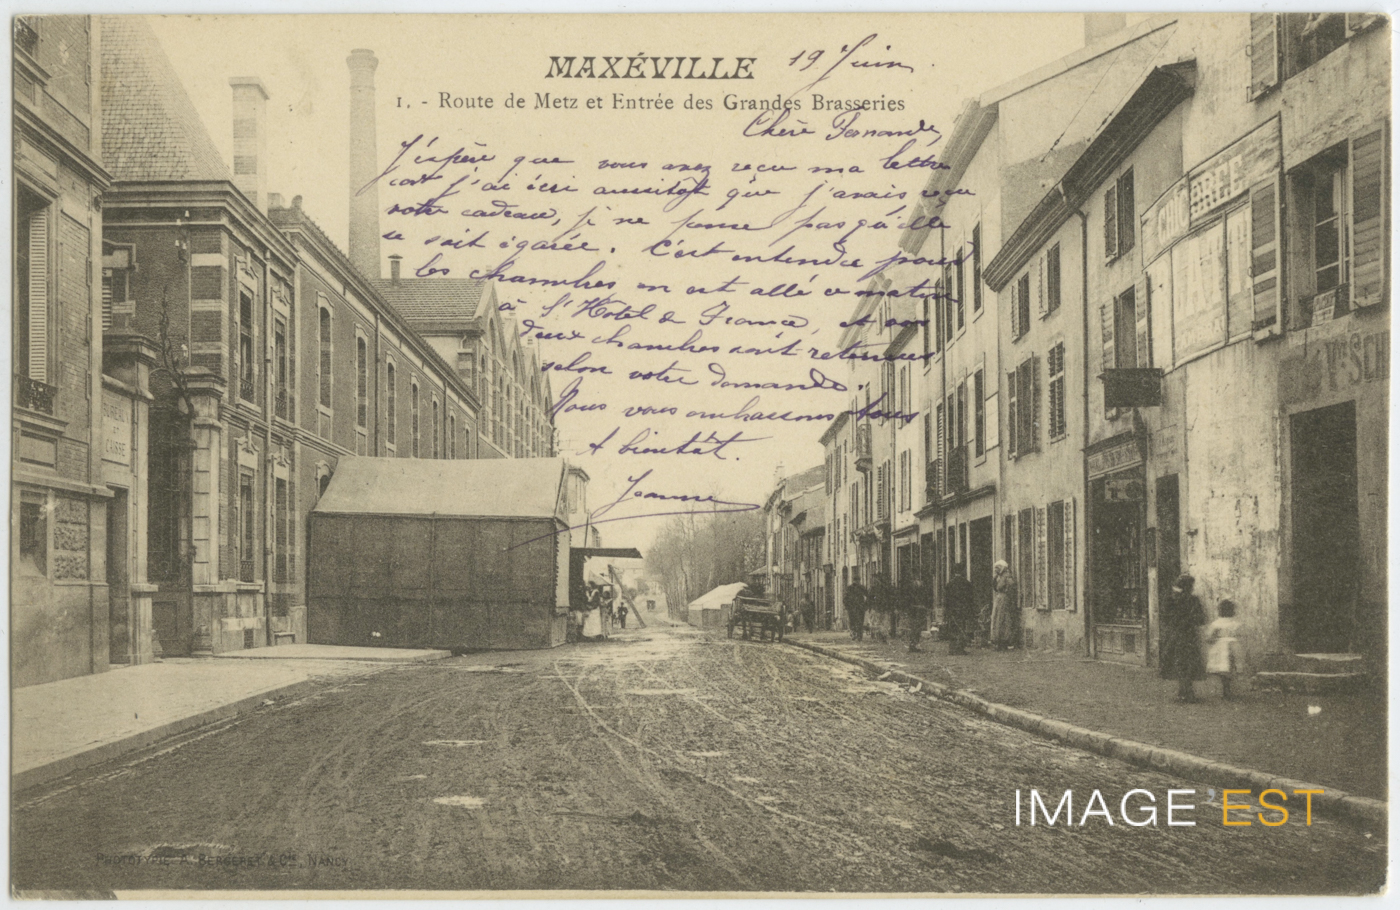 MAXÉVILLE
19 Juin.
1. - Route de Metz et Entrée des Grandes Brasseries
Chère Fernande,
J'espère que vous avez reçu ma lettre
car j'ai écri aussitôt que j'avais reçu
votre cadeau, je ne pense pas qu'elle
se soit égarée. C'est entendu pour
les chambres on est allé ce matin
à l'Hôtel de France, et vos
deux chambres sont retenues
selon votre demande.
Nous vous embrassons tous
A bientôt.
Jeanne
BUREAU
ET
CAISSE
CHICORÉE
IMAGE'EST
PHOTOTYPIE A. BERGERET & Cie, NANCY